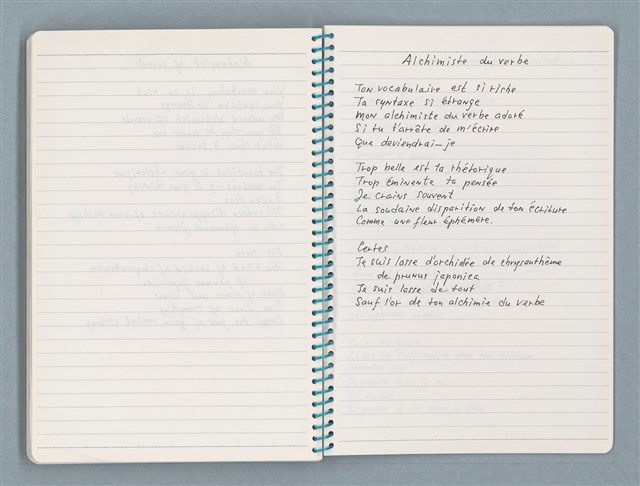 Alchimiste du verbe
Ton vocabulaire est si riche
Ta syntaxe si étrange
Mon alchimiste du verbe adoré
Si tu t'arrête de m'écrire
Que deviendrai-je
Trop belle est ta rhétorique
Trop éminente ta pensée
Je crains souvent
La soudaine disparition de ton écriture
Comme une fleur éphémère.
Certes
Je suis lasse d'orchidée de chrysanthème
de prunus japonica
Je suis lasse de tout
Sauf l'or de ton alchimie du verbe